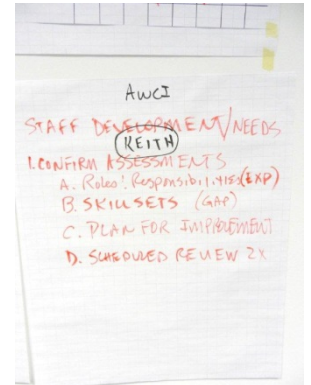 AWCI
STAFF DEVELOPMENT/NEEDS
KEITH
1. CONFIRM ASSESSMENTS
A. Roles! Responsibilities (EXP)
B. SKILLSETS (GAP)
C. PLAN FOR IMPROVEMENT
D. SCHEDULED REVIEW 2X